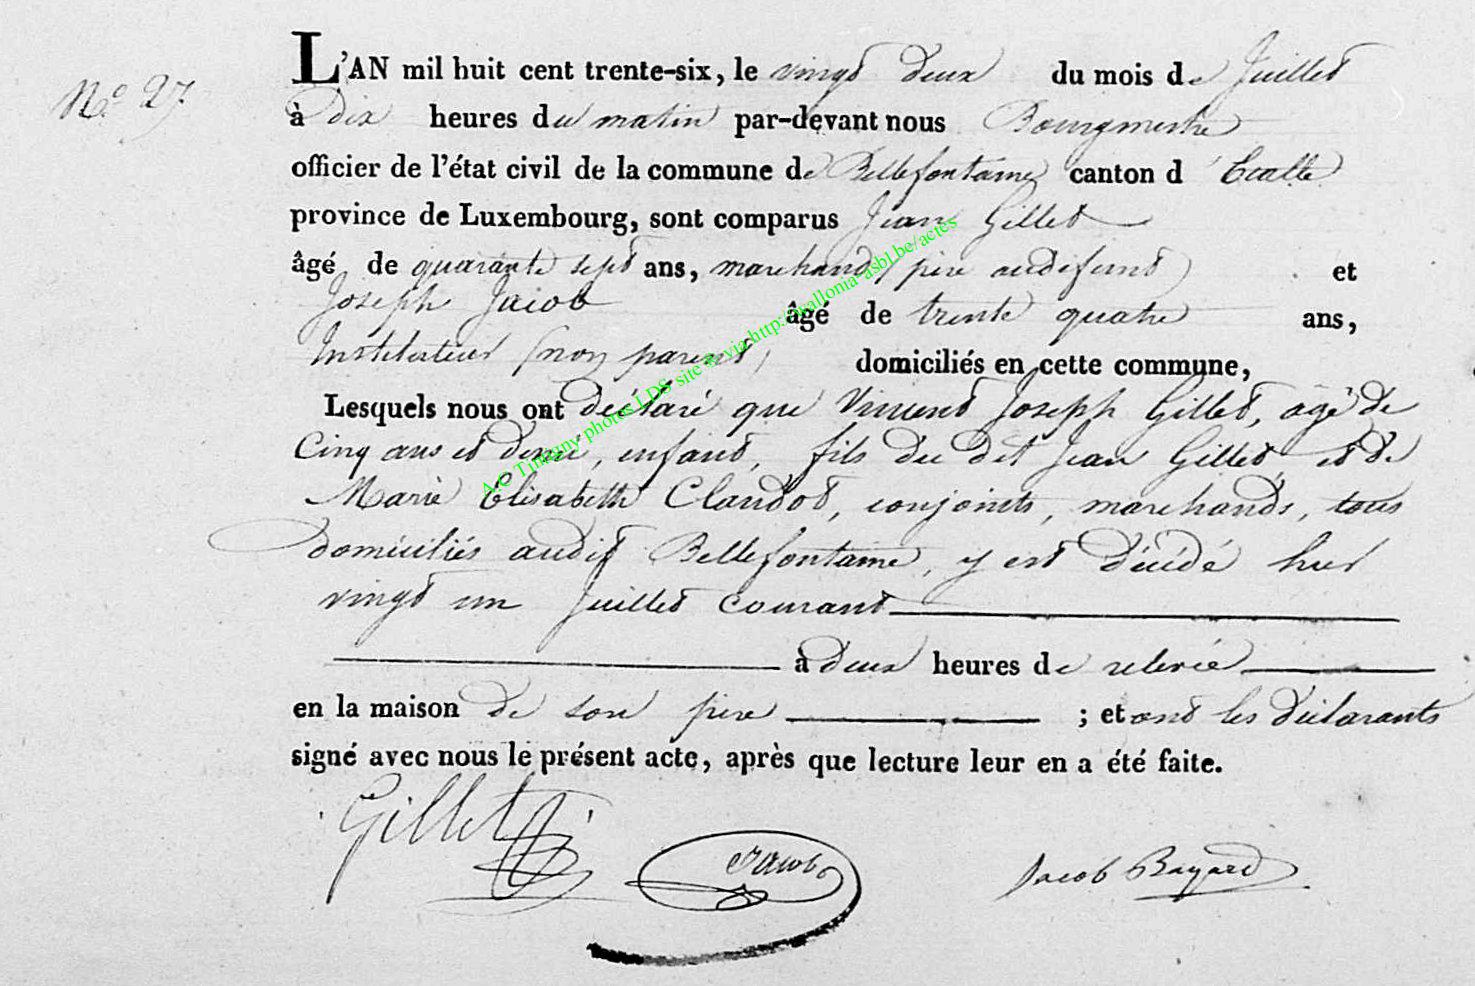 N.° 27.
L'AN mil huit cent trente-six, le vingt deux du mois de Juillet
à dix heures du matin par-devant nous Bourgmestre
officier de l'état civil de la commune de Bellefontaine canton d'Etalle
province de Luxembourg, sont comparus Jean Gillet
âgé de quarante sept ans, marchand (père au défunt) et
Joseph Jacob âgé de trente quatre ans,
Instituteur (non parent) domiciliés en cette commune,
Lesquels nous ont déclaré que Vincent Joseph Gillet, âgé de
Cinq ans et demi, enfant, fils du dit Jean Gillet et de
Marie Élisabeth Claudot, conjoints, marchands, tous
domiciliés audit Bellefontaine, y est décédé hier
vingt un Juillet courant
à deux heures de relevée
en la maison de son père ; et ont les déclarants
signé avec nous le présent acte, après que lecture leur en a été faite.
Gillet
Jacob
Jacob Bayard
A.C Tintigny photos LDS site via http://kallonia-asbl.be/actes